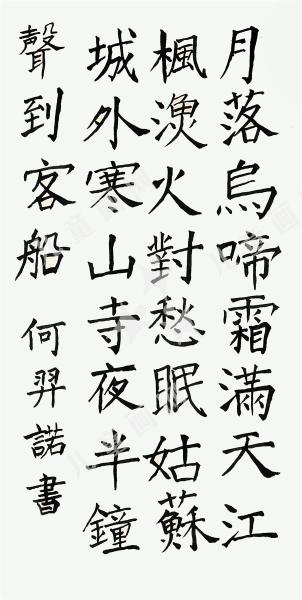 月落烏啼霜滿天江
楓漁火對愁眠姑蘇
城外寒山寺夜半鐘
聲到客船 何羿諾書